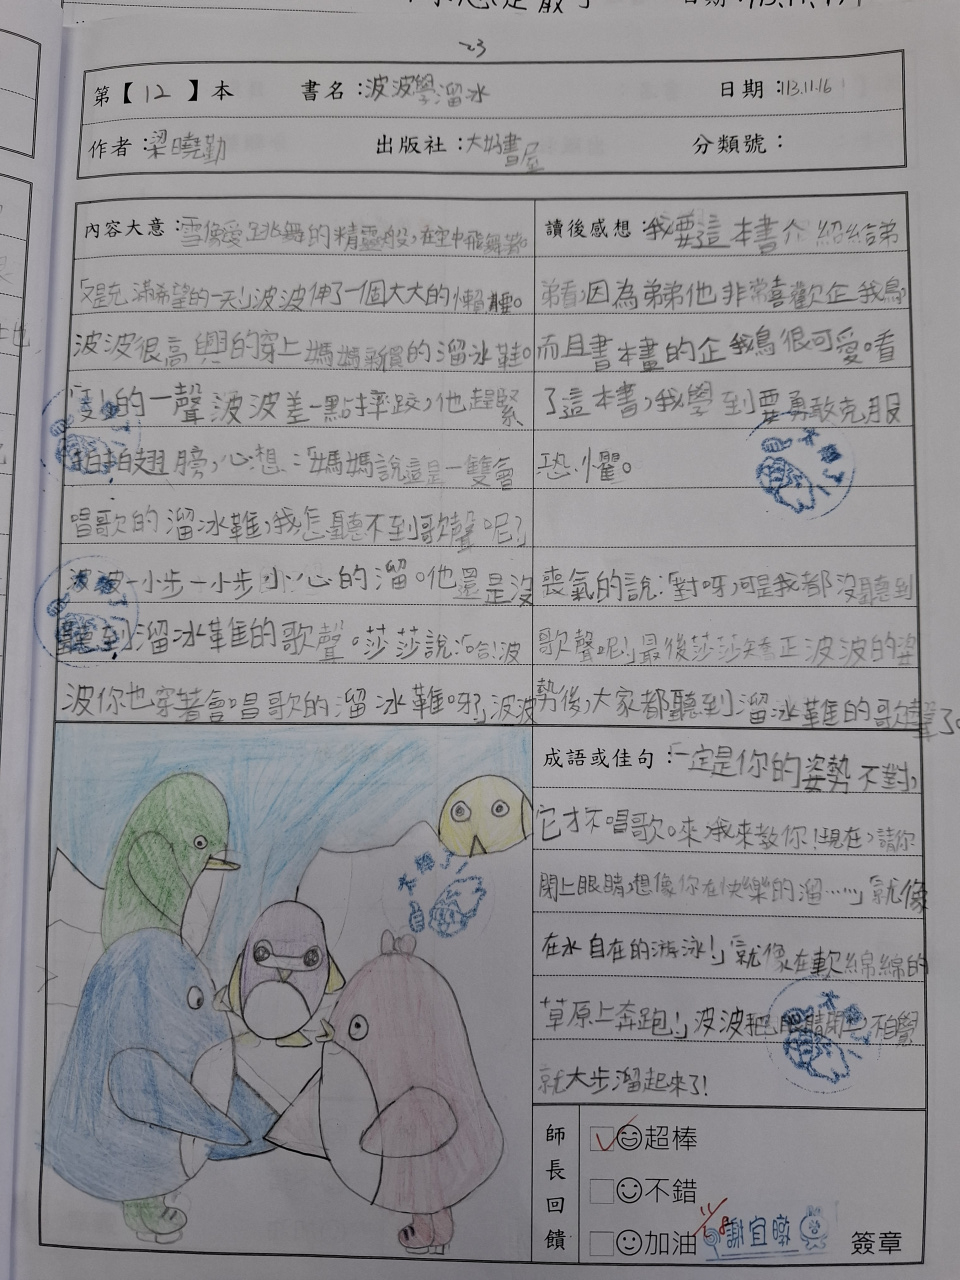 23
第【12】本 書名：波波學溜冰 日期：113.11.16
作者：梁曉勤 出版社：大好書屋 分類號：
內容大意：雪像愛跳舞的精靈般，在空中飛舞著。
「又是充滿希望的一天！」波波伸了一個大大的懶腰。
波波很高興的穿上媽媽新買的溜冰鞋。
的一聲波波差一點摔跤，他趕緊
拍拍翅膀，心想：「媽媽說這是一雙會
唱歌的溜冰鞋，我怎聽不到歌聲呢？」
波波一小步一小步小心的溜。他還是沒
聽到溜冰鞋的歌聲。莎莎說：「哈！波
波你也穿著會唱歌的溜冰鞋呀？」波波
讀後感想：我要這本書介紹給弟
弟看，因為弟弟他非常喜歡企鵝，
而且書本畫的企鵝很可愛。看
了這本書，我學到要勇敢克服
恐懼。
喪氣的說：「對呀，可是我都沒聽到
歌聲呢！」最後莎莎矯正波波的姿
勢後，大家都聽到溜冰鞋的歌聲了。
成語或佳句：「一定是你的姿勢不對，
它才不唱歌。來，我來教你！現在，請你
閉上眼睛，想像你在快樂的溜……」「就像
在水自在的游泳！」「就像在軟綿綿的
草原上奔跑！」波波把眼睛閉 不自覺
就大步溜起來了！
師長回饋
超棒
不錯
加油 謝宜 簽章
太棒了